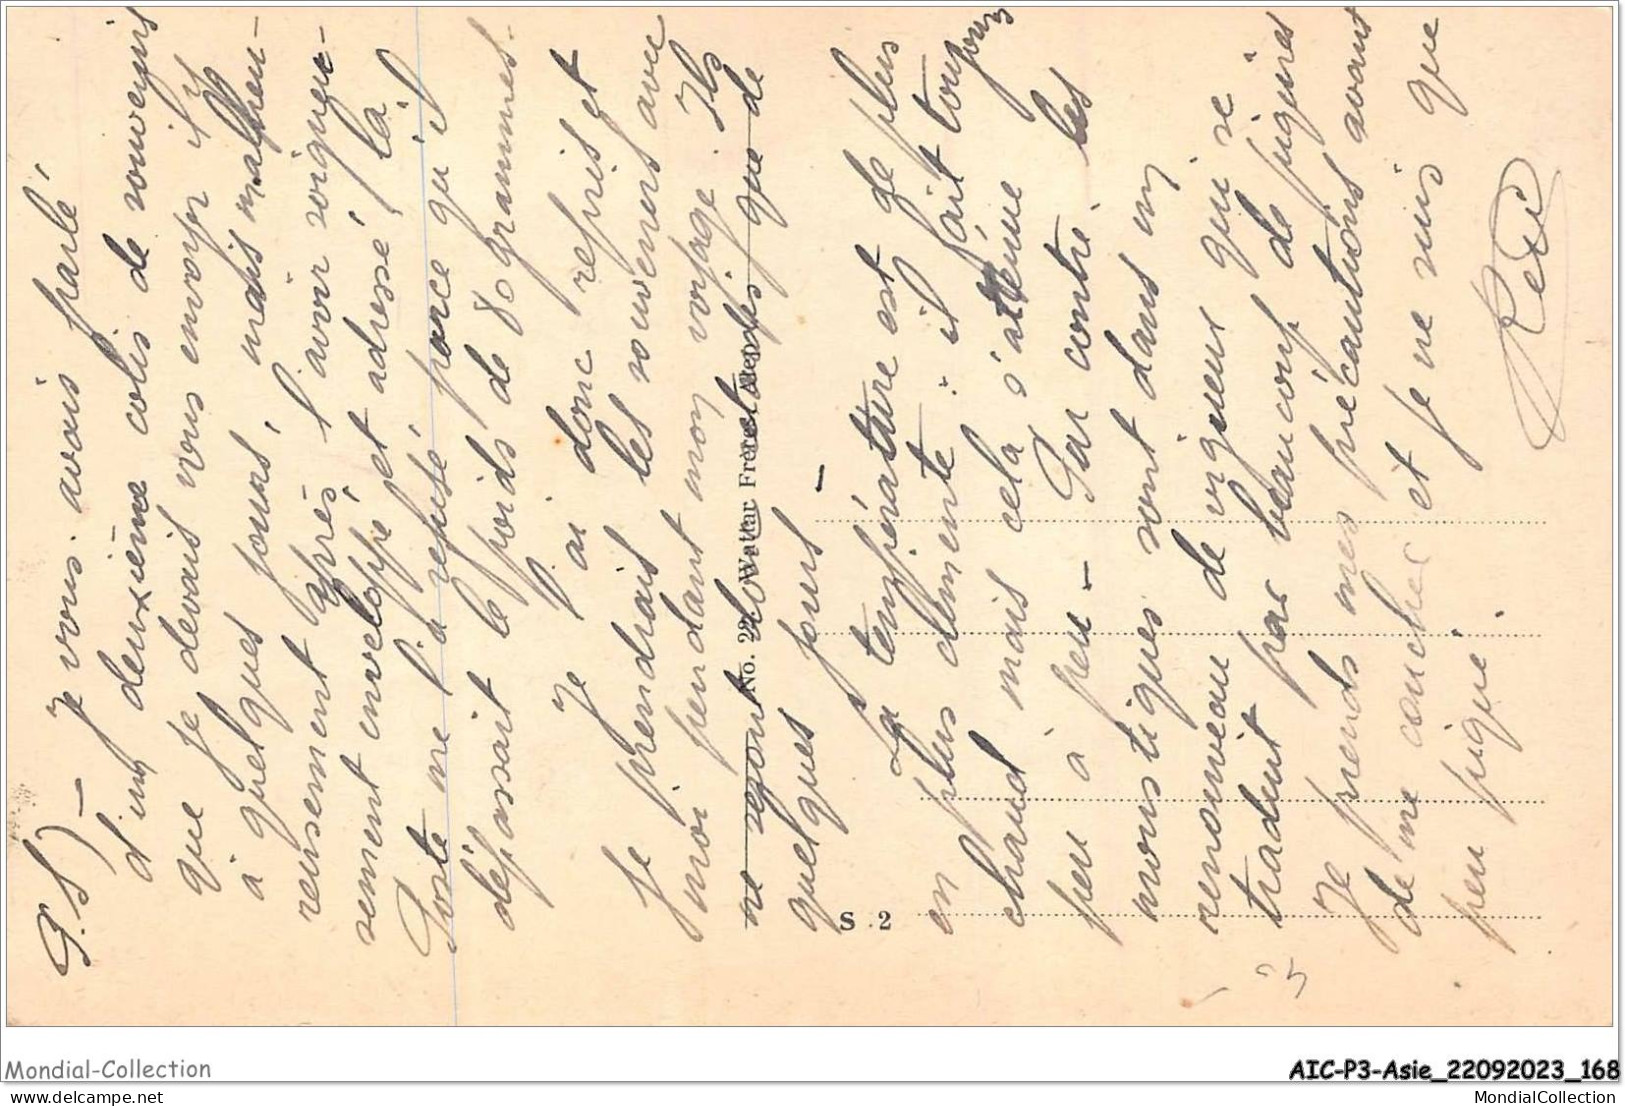 P.S) — Je vous avais parlé
d'un deuxième colis de souvenirs
que je devais vous envoyer il y
à quelques jours, mais malheu-
reusement après l'avoir soigneu-
sement enveloppé et adressé, la
Poste me l'a refusé parce qu'il
dépassait le poids de 80 grammes.
Je j'ai donc repris et
je prendrais les souvenirs avec
moi pendant mon voyage. Ils
ne seront donc retardés que de
quelques jours —
La température est de plus
en plus clémente : il fait toujours
chaud mais cela s'atténue
peu à peu — Par contre, les
moustiques sont dans un
renouveau de vigueur qui se
traduit par beaucoup de piqures
Je prends mes précautions avant
de me coucher et je ne suis que
peu piqué.
No. 22. Wattar Frères Alep
S .2
Mondial-Collection
AIC-P3-Asie_22092023_168
delcampe.net
MondialCollection